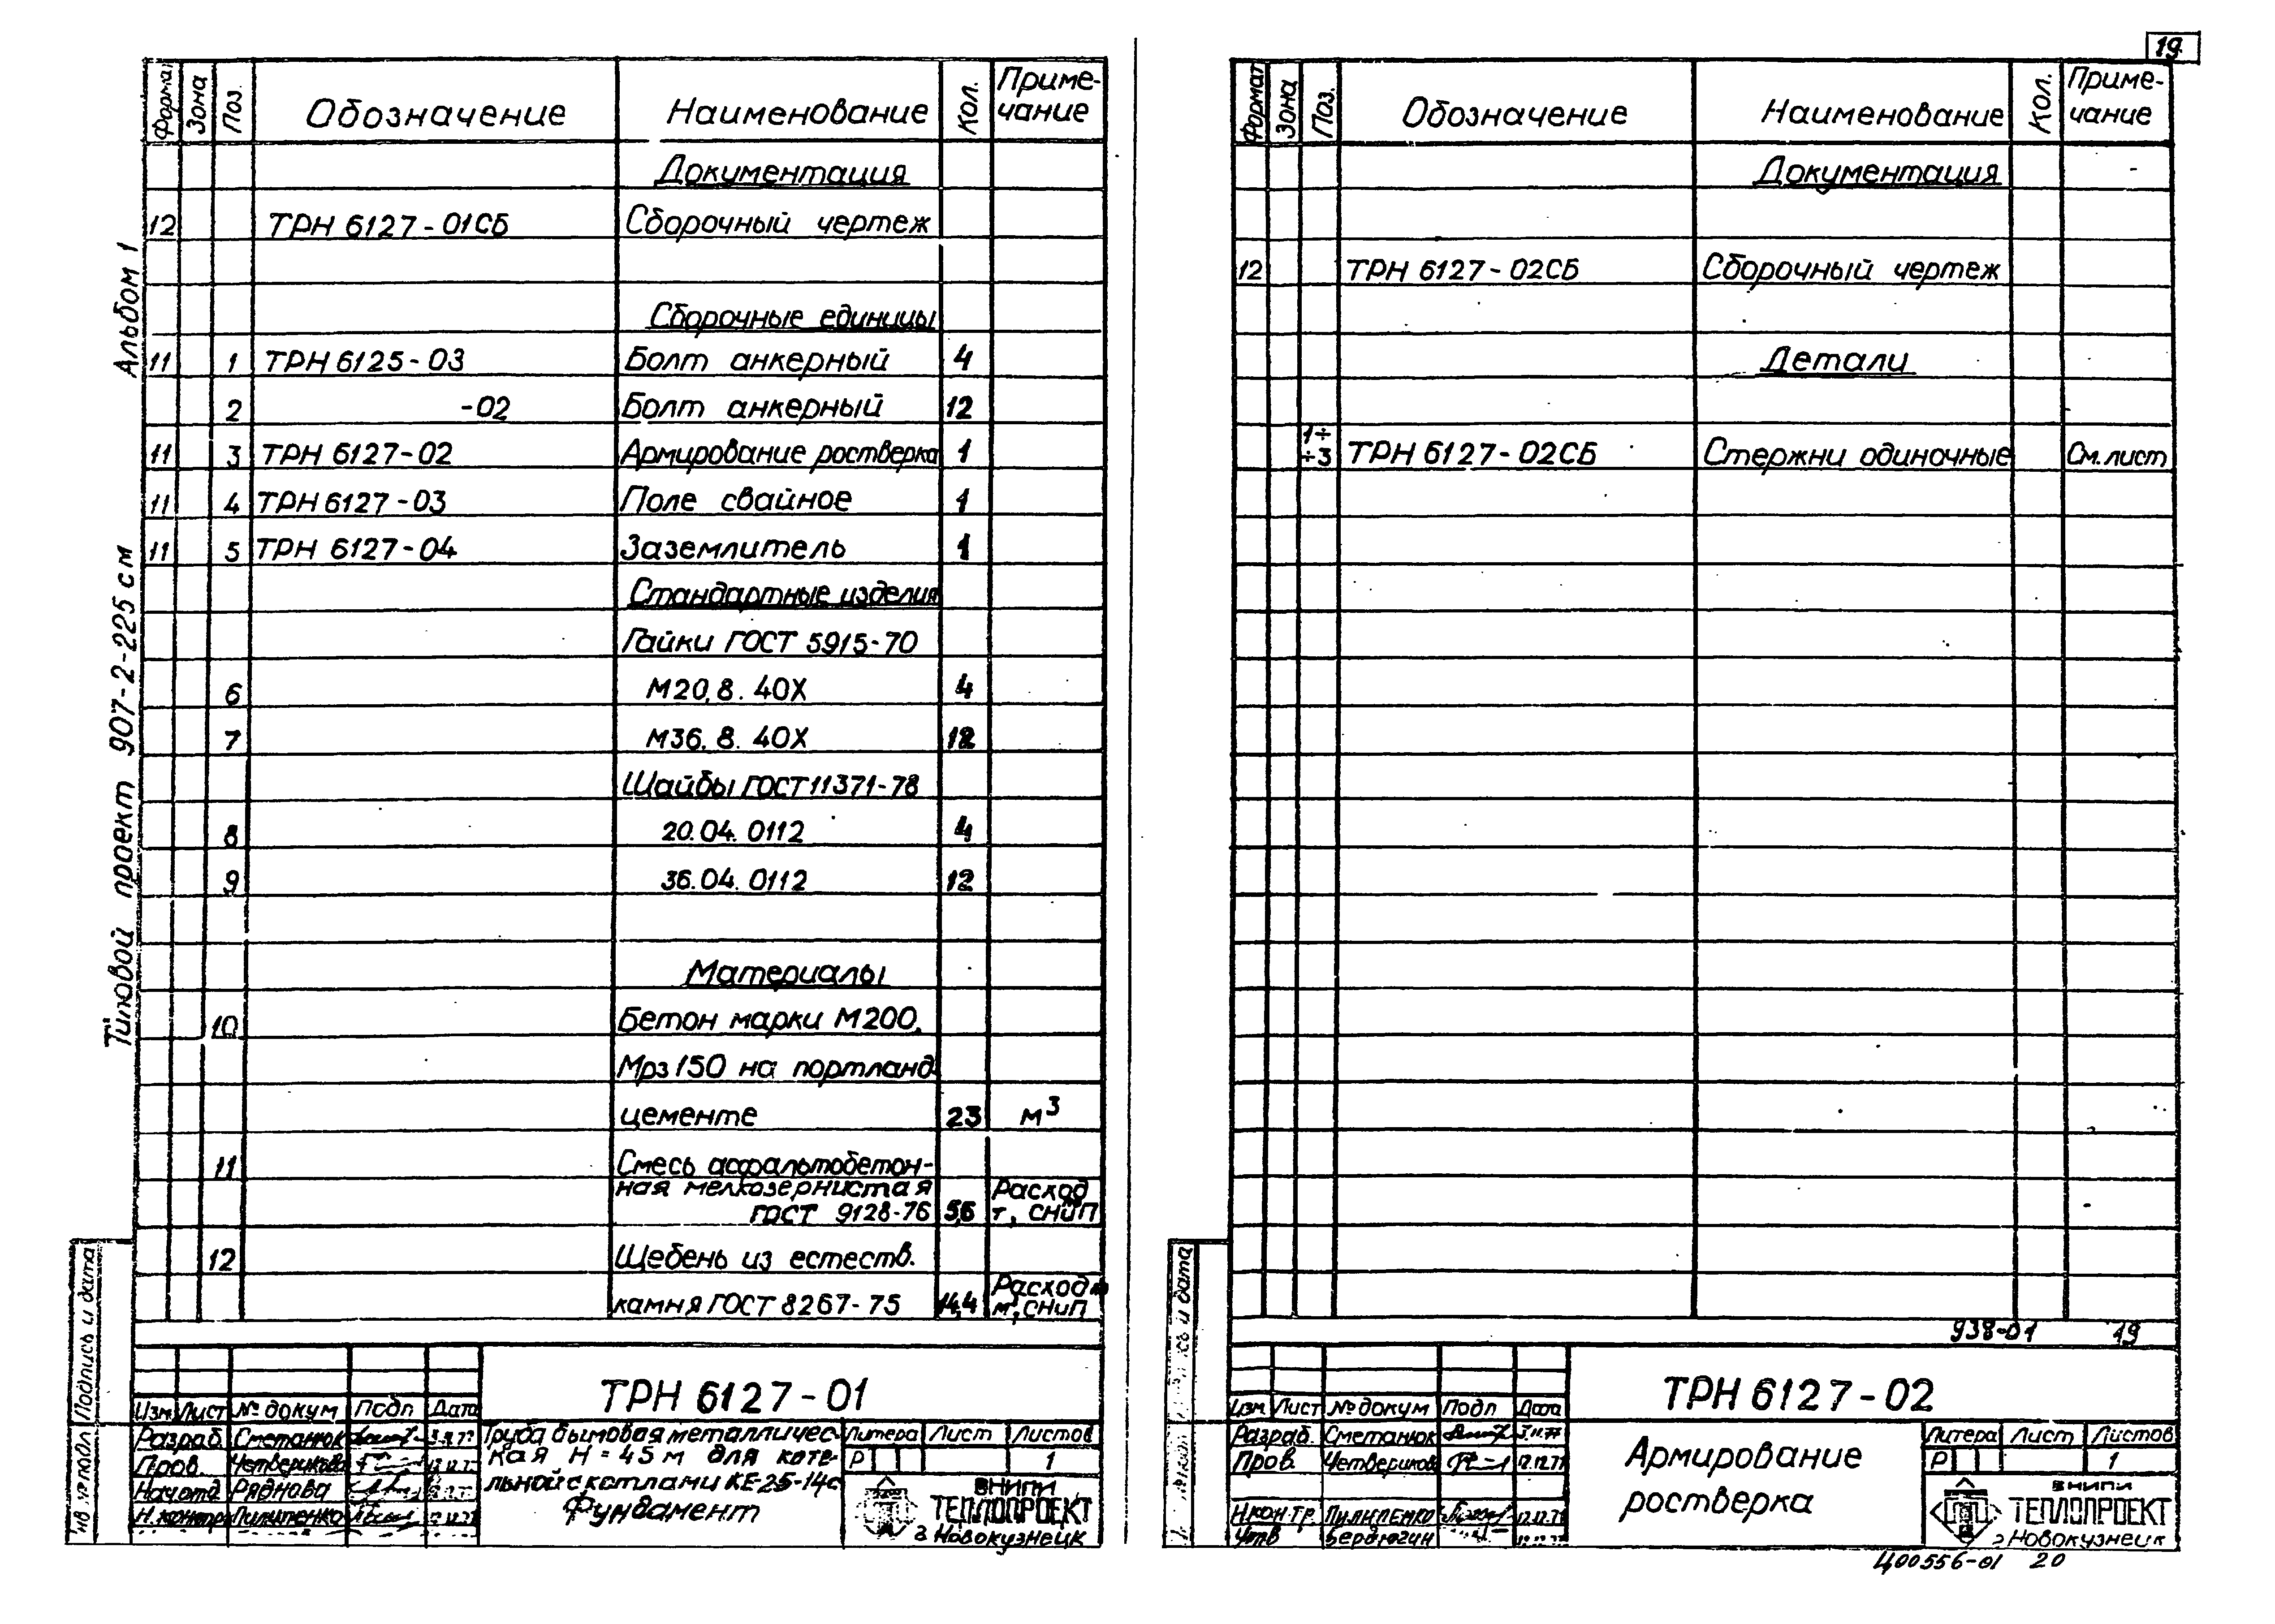 19
Альбом 1
Типовой проект 907-2-225 см
Формат Зона Поз. Обозначение Наименование Кол. Приме-
чание
Документация
12 ТРН 6127-01СБ Сборочный чертеж
Сборочные единицы
11 1 ТРН 6125-03 Болт анкерный 4
2 -02 Болт анкерный 12
11 3 ТРН 6127-02 Армирование ростверка 1
11 4 ТРН 6127-03 Поле свайное 1
11 5 ТРН 6127-04 Заземлитель 1
Стандартные изделия
Гайки ГОСТ 5915-70
6 М20.8.40Х 4
7 М36.8.40Х 12
Шайбы ГОСТ 11371-78
8 20.04.0112 4
9 36.04.0112 12
Материалы
10 Бетон марки М200,
Мрз 150 на портланд-
цементе 23 м³
11 Смесь асфальтобетон-
ная мелкозернистая Расход
ГОСТ 9128-76 5,6 т, СНиП
12 Щебень из естеств.
Расход
камня ГОСТ 8267-75 14,4 м³, СНиП
Подпись и дата
ТРН 6127-01
Изм Лист № докум Подп Дата
Разраб. Сметанюк
Пров. Четверикова
Нач отд Ряднова
Н. контр Пилипенко
Труба дымовая металличес-
кая Н = 45 м для коте-
льной с котлами КЕ-25-14с
Фундамент
Литера Лист Листов
Р 1
ВНИПИ
ТЕПЛОПРОЕКТ
г Новокузнецк
Формат Зона Поз. Обозначение Наименование Кол. Приме-
чание
Документация
12 ТРН 6127-02СБ Сборочный чертеж
Детали
1÷
÷3 ТРН 6127-02СБ Стержни одиночные См. лист
938-01 19
и дата
ТРН 6127-02
Изм Лист № докум Подп Дата
Разраб. Сметанюк
Пров. Четверикова 12.12.77
Н.контр. Пилипенко
Утв Бердюгин
Армирование
ростверка
Литера Лист Листов
Р 1
ВНИПИ
ТЕПЛОПРОЕКТ
г Новокузнецк
Ц00556-01 20